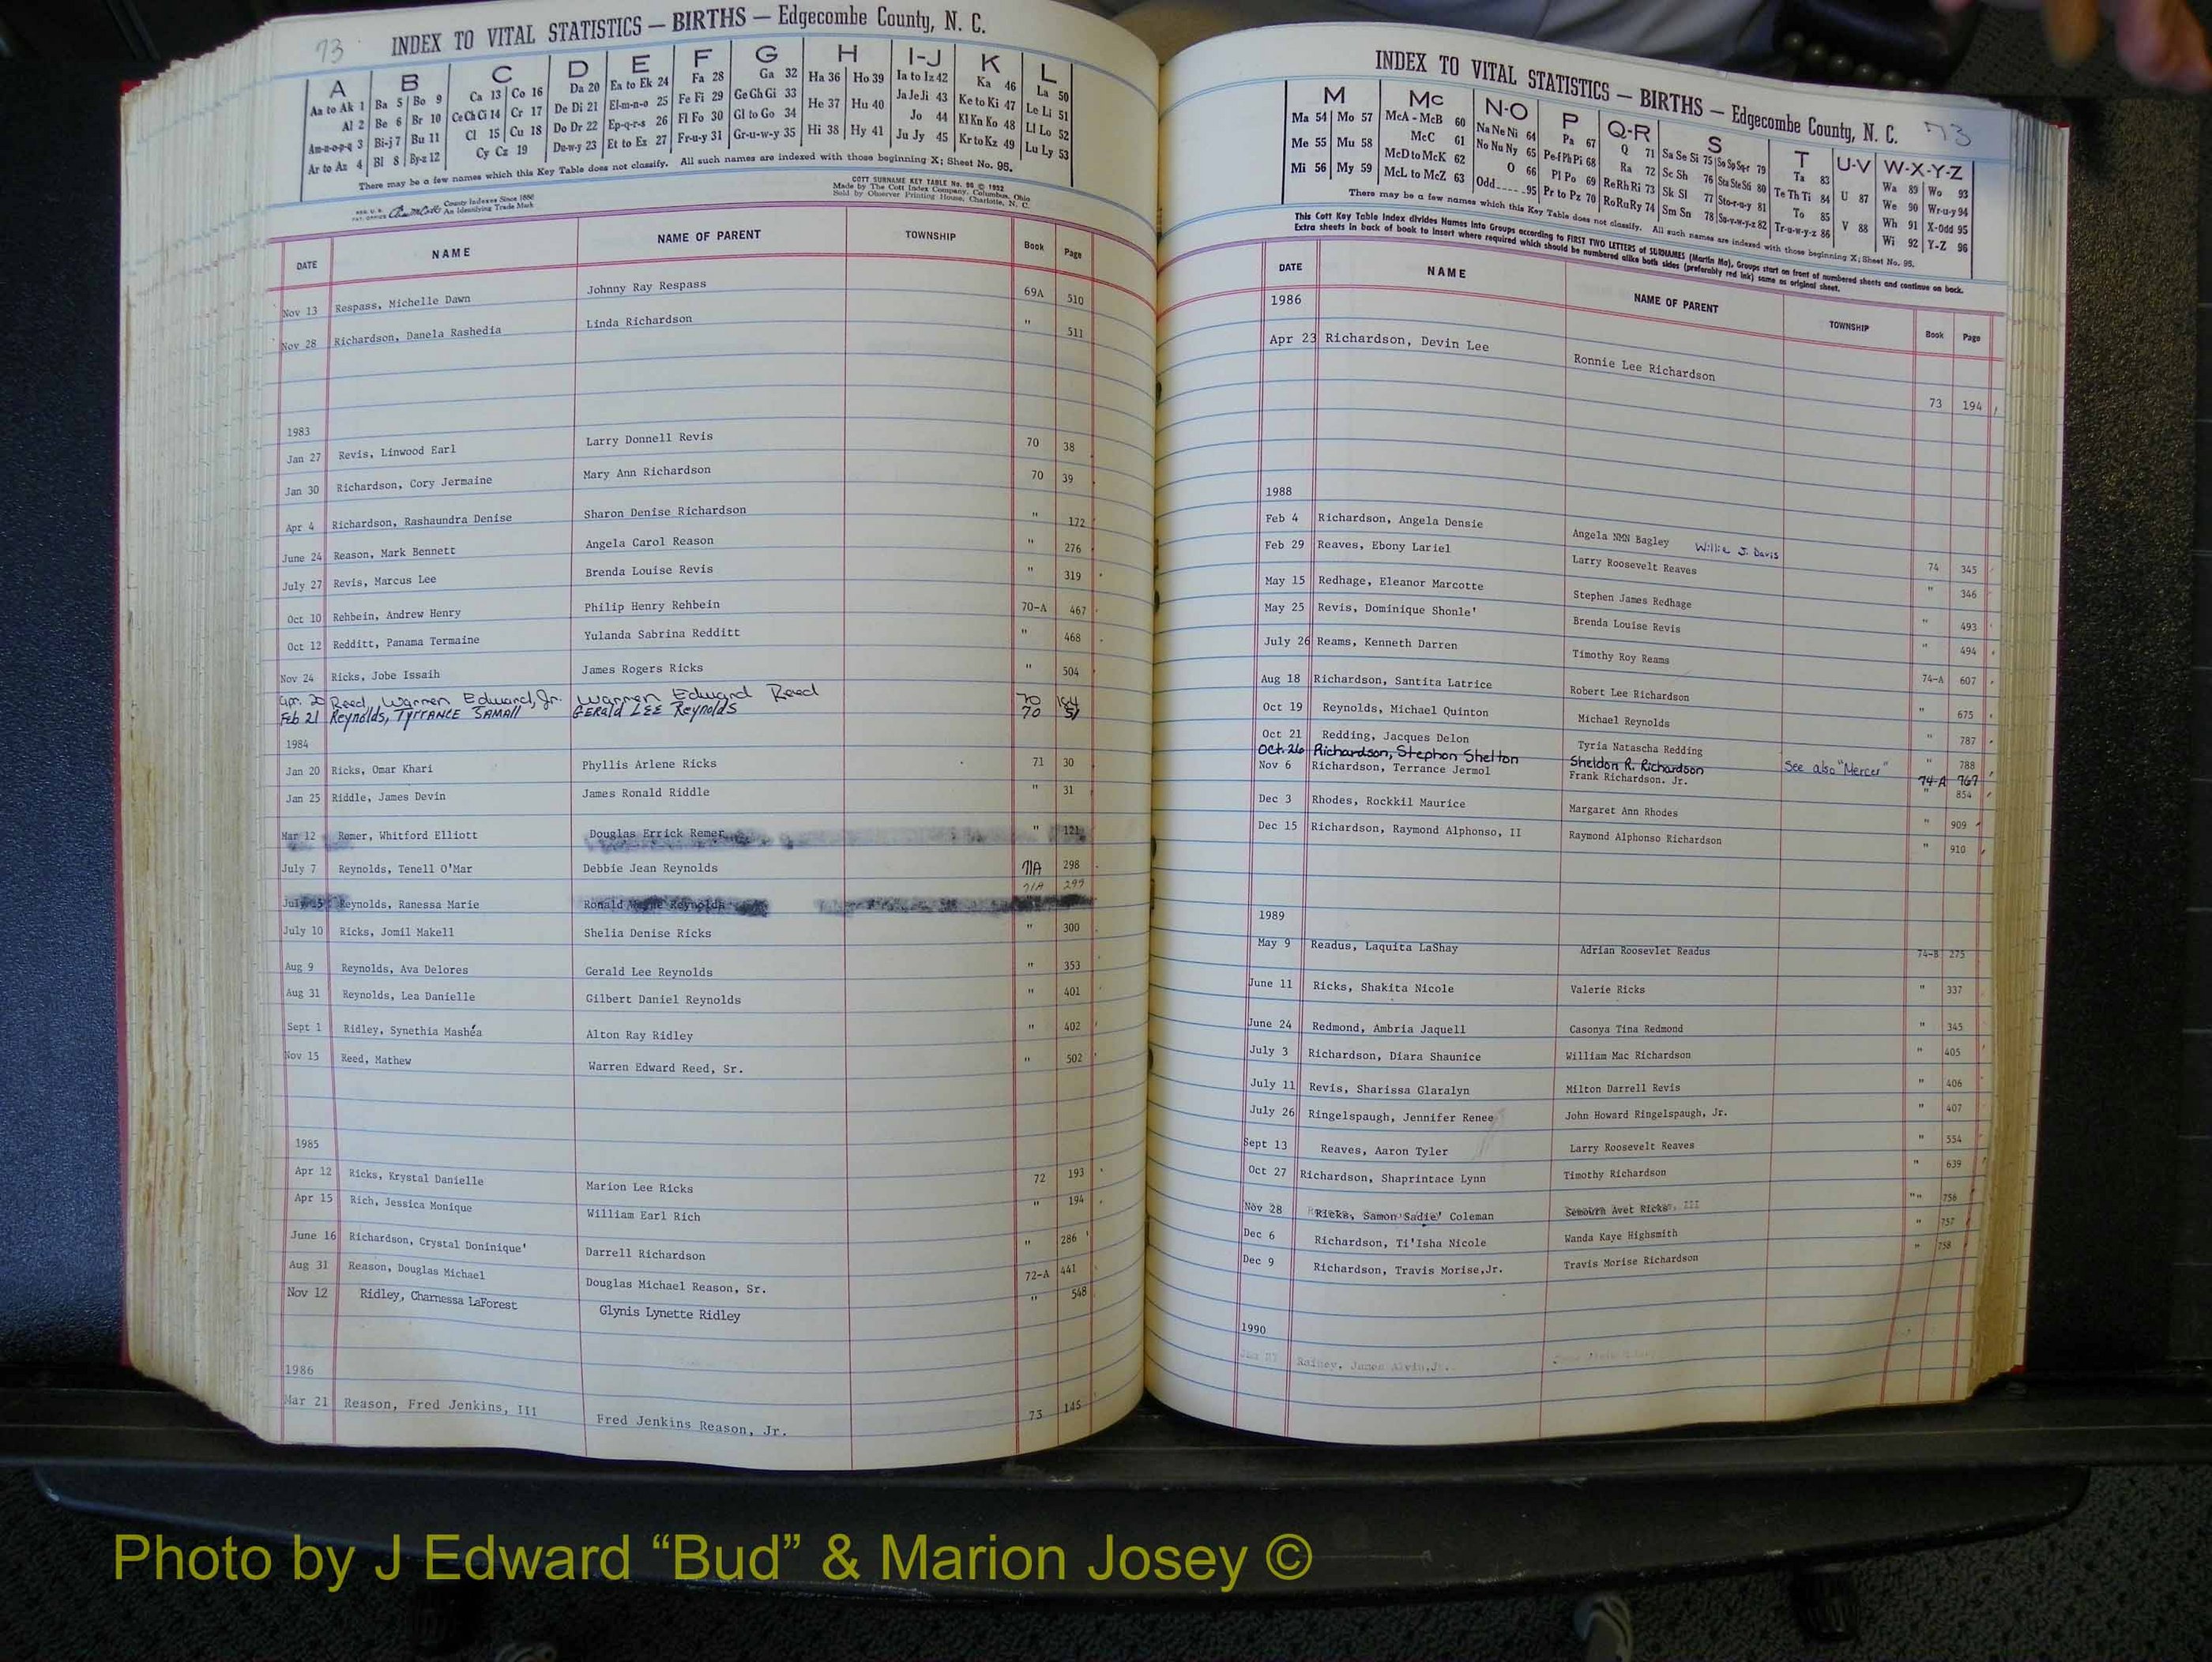 73 INDEX TO VITAL STATISTICS — BIRTHS — Edgecombe County, N. C.
A B C D E F G H I-J K L
Aa to Ak 1 Ba 5 Bo 9 Ca 13 Co 16 Da 20 Ea to Ek 24 Fa 28 Ga 32 Ha 36 Ho 39 Ia to Iz 42 Ka 46 La 50
Al 2 Be 6 Br 10 Ce Ch Ci 14 Cr 17 De Di 21 El-m-n-o 25 Fe Fi 29 Ge Gh Gi 33 He 37 Hu 40 Ja Je Ji 43 Ke to Ki 47 Le Li 51
Am-n-o-p-q 3 Bi-j 7 Bu 11 Cl 15 Cu 18 Do Dr 22 Ep-q-r-s 26 Fl Fo 30 Gl to Go 34 Hi 38 Hy 41 Jo 44 Kl Kn Ko 48 Ll Lo 52
Ar to Az 4 Bl 8 By-z 12 Cy Cz 19 Du-w-y 23 Et to Ez 27 Fr-u-y 31 Gr-u-w-y 35 Ju Jy 45 Kr to Kz 49 Lu Ly 53
There may be a few names which this Key Table does not classify. All such names are indexed with those beginning X; Sheet No. 95.
County Indexes Since 1888
An Identifying Trade Mark
COTT SURNAME KEY TABLE No. 96 © 1932
Made by The Cott Index Company, Columbus, Ohio
Sold by Observer Printing House, Charlotte, N. C.
DATE NAME NAME OF PARENT TOWNSHIP Book Page
Nov 13 Respass, Michelle Dawn Johnny Ray Respass 69A 510
Nov 28 Richardson, Danela Rashedia Linda Richardson " 511
1983
Jan 27 Revis, Linwood Earl Larry Donnell Revis 70 38
Jan 30 Richardson, Cory Jermaine Mary Ann Richardson 70 39
Apr 4 Richardson, Rashaundra Denise Sharon Denise Richardson " 172
June 24 Reason, Mark Bennett Angela Carol Reason " 276
July 27 Revis, Marcus Lee Brenda Louise Revis " 319
Oct 10 Rehbein, Andrew Henry Philip Henry Rehbein 70-A 467
Oct 12 Redditt, Panama Termaine Yulanda Sabrina Redditt " 468
Nov 24 Ricks, Jobe Issaih James Rogers Ricks " 504
Apr. 20 Reed, Warren Edward, Jr. Warren Edward Reed 70 164
Feb 21 Reynolds, TYRRANCE SAMAll GERALD LEE Reynolds 70 51
1984
Jan 20 Ricks, Omar Khari Phyllis Arlene Ricks 71 30
Jan 25 Riddle, James Devin James Ronald Riddle " 31
Mar 12 Remer, Whitford Elliott Douglas Errick Remer " 121
July 7 Reynolds, Tenell O'Mar Debbie Jean Reynolds 71A 298
71A 299
July 15 Reynolds, Ranessa Marie Ronald Wayne Reynolds
July 10 Ricks, Jomil Makell Shelia Denise Ricks " 300
Aug 9 Reynolds, Ava Delores Gerald Lee Reynolds " 353
Aug 31 Reynolds, Lea Danielle Gilbert Daniel Reynolds " 401
Sept 1 Ridley, Synethia Mashéa Alton Ray Ridley " 402
Nov 15 Reed, Mathew Warren Edward Reed, Sr. " 502
1985
Apr 12 Ricks, Krystal Danielle Marion Lee Ricks 72 193
Apr 15 Rich, Jessica Monique William Earl Rich " 194
June 16 Richardson, Crystal Doninique' Darrell Richardson " 286
Aug 31 Reason, Douglas Michael Douglas Michael Reason, Sr. 72-A 441
Nov 12 Ridley, Charnessa LaForest Glynis Lynette Ridley " 548
1986
Mar 21 Reason, Fred Jenkins, III Fred Jenkins Reason, Jr. 73 145
INDEX TO VITAL STATISTICS — BIRTHS — Edgecombe County, N. C. 73
M Mc N-O P Q-R S T U-V W-X-Y-Z
Ma 54 Mo 57 McA - McB 60 Na Ne Ni 64 Pa 67 Q 71 Sa Se Si 75 So Sp Sq-r 79 Ta 83 U 87 Wa 89 Wo 93
Me 55 Mu 58 McC 61 No Nu Ny 65 Pe-f Ph Pi 68 Ra 72 Sc Sh 76 Sta Ste Sti 80 Te Th Ti 84 V 88 We 90 Wr-u-y 94
Mi 56 My 59 McD to McK 62 O 66 Pl Po 69 Re Rh Ri 73 Sk Sl 77 Sto-r-u-y 81 To 85 Wh 91 X-Odd 95
McL to McZ 63 Odd 95 Pr to Pz 70 Ro Ru Ry 74 Sm Sn 78 Su-v-w-y-z 82 Tr-u-w-y-z 86 Wi 92 Y-Z 96
There may be a few names which this Key Table does not classify. All such names are indexed with those beginning X; Sheet No. 95.
This Cott Key Table Index divides Names into Groups according to FIRST TWO LETTERS of SURNAMES (Martin Ma), Groups start on front of numbered sheets and continue on back.
Extra sheets in back of book to insert where required which should be numbered alike both sides (preferably red ink) same as original sheet.
DATE NAME NAME OF PARENT TOWNSHIP Book Page
1986
Apr 23 Richardson, Devin Lee Ronnie Lee Richardson 73 194
1988
Feb 4 Richardson, Angela Densie Angela NMN Bagley Willie J. Davis 74 345
Feb 29 Reaves, Ebony Lariel Larry Roosevelt Reaves " 346
May 15 Redhage, Eleanor Marcotte Stephen James Redhage " 493
May 25 Revis, Dominique Shonle' Brenda Louise Revis " 494
July 26 Reams, Kenneth Darren Timothy Roy Reams 74-A 607
Aug 18 Richardson, Santita Latrice Robert Lee Richardson " 675
Oct 19 Reynolds, Michael Quinton Michael Reynolds " 787
Oct 21 Redding, Jacques Delon Tyria Natascha Redding " 788
Oct. 26 Richardson, Stephon Shelton Sheldon R. Richardson See also "Mercer" 74-A 767
Nov 6 Richardson, Terrance Jermol Frank Richardson. Jr. " 854
Dec 3 Rhodes, Rockkil Maurice Margaret Ann Rhodes " 909
Dec 15 Richardson, Raymond Alphonso, II Raymond Alphonso Richardson " 910
1989
May 9 Readus, Laquita LaShay Adrian Roosevlet Readus 74-B 275
June 11 Ricks, Shakita Nicole Valerie Ricks " 337
June 24 Redmond, Ambria Jaquell Casonya Tina Redmond " 345
July 3 Richardson, Diara Shaunice William Mac Richardson " 405
July 11 Revis, Sharissa Glaralyn Milton Darrell Revis " 406
July 26 Ringelspaugh, Jennifer Renee John Howard Ringelspaugh, Jr. " 407
Sept 13 Reaves, Aaron Tyler Larry Roosevelt Reaves " 554
Oct 27 Richardson, Shaprintace Lynn Timothy Richardson " 639
Nov 28 Ricks, Samon Sadie' Coleman Semourn Avet Ricks, III "" 756
Dec 6 Richardson, Ti'Isha Nicole Wanda Kaye Highsmith " 757
Dec 9 Richardson, Travis Morise,Jr. Travis Morise Richardson " 758
1990
Rainey, James Alvin,Jr.
Photo by J Edward “Bud” & Marion Josey ©